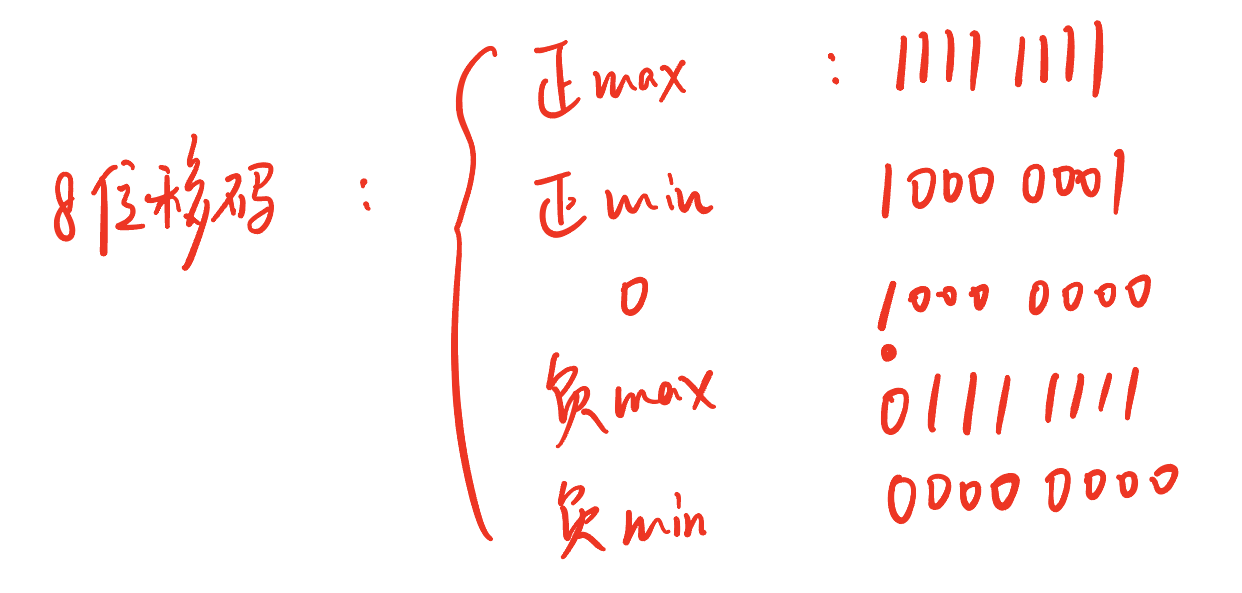 正max : 1111 1111
正min 1000 0001
8位移码 :
0 1000 0000
负max 0111 1111
负min 0000 0000